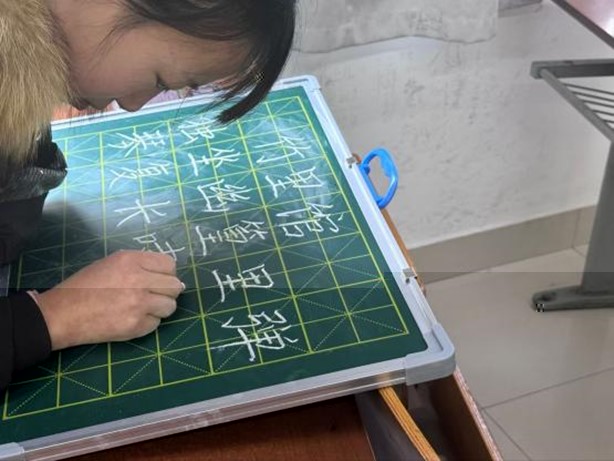 竹里馆
独坐幽篁里弹
琴复长